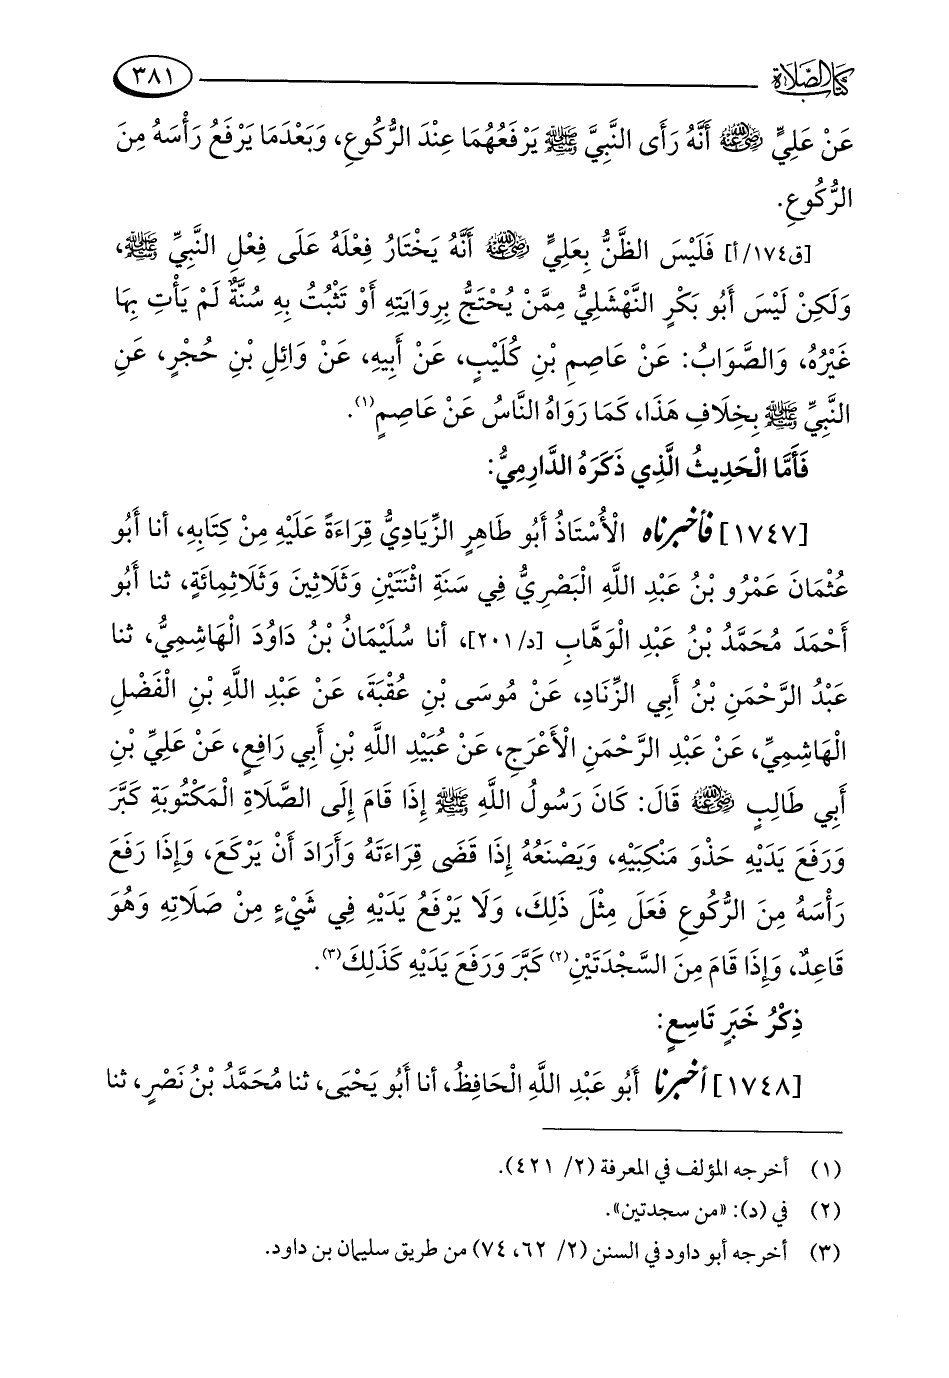 كتاب الصلاة ٣٨١
عَنْ عَلِيٍّ رضي الله عنه أَنَّهُ رَأَى النَّبِيَّ ﷺ يَرْفَعُهُمَا عِنْدَ الرُّكُوعِ، وَبَعْدَمَا يَرْفَعُ رَأْسَهُ مِنَ
الرُّكُوعِ.
[ق١٧٤/أ] فَلَيْسَ الظَّنُّ بِعَلِيٍّ رضي الله عنه أَنَّهُ يَخْتَارُ فِعْلَهُ عَلَى فِعْلِ النَّبِيِّ ﷺ،
وَلَكِنْ لَيْسَ أَبُو بَكْرٍ النَّهْشَلِيُّ مِمَّنْ يُحْتَجُّ بِرِوَايَتِهِ أَوْ تَثْبُتُ بِهِ سُنَّةٌ لَمْ يَأْتِ بِهَا
غَيْرُهُ، وَالصَّوَابُ: عَنْ عَاصِمِ بْنِ كُلَيْبٍ، عَنْ أَبِيهِ، عَنْ وَائِلِ بْنِ حُجْرٍ، عَنِ
النَّبِيِّ ﷺ بِخِلَافِ هَذَا، كَمَا رَوَاهُ النَّاسُ عَنْ عَاصِمٍ(١).
فَأَمَّا الْحَدِيثُ الَّذِي ذَكَرَهُ الدَّارِمِيُّ:
[١٧٤٧] فأخبرناه الْأُسْتَاذُ أَبُو طَاهِرٍ الزِّيَادِيُّ قِرَاءَةً عَلَيْهِ مِنْ كِتَابِهِ، أنا أَبُو
عُثْمَانَ عَمْرُو بْنُ عَبْدِ اللَّهِ الْبَصْرِيُّ فِي سَنَةِ اثْنَتَيْنِ وَثَلَاثِينَ وَثَلَاثِمِائَةٍ، ثنا أَبُو
أَحْمَدَ مُحَمَّدُ بْنُ عَبْدِ الْوَهَّابِ [د/٢٠١]، أنا سُلَيْمَانُ بْنُ دَاوُدَ الْهَاشِمِيُّ، ثنا
عَبْدُ الرَّحْمَنِ بْنُ أَبِي الزِّنَادِ، عَنْ مُوسَى بْنِ عُقْبَةَ، عَنْ عَبْدِ اللَّهِ بْنِ الْفَضْلِ
الْهَاشِمِيِّ، عَنْ عَبْدِ الرَّحْمَنِ الْأَعْرَجِ، عَنْ عُبَيْدِ اللَّهِ بْنِ أَبِي رَافِعٍ، عَنْ عَلِيِّ بْنِ
أَبِي طَالِبٍ رضي الله عنه قَالَ: كَانَ رَسُولُ اللَّهِ ﷺ إِذَا قَامَ إِلَى الصَّلَاةِ الْمَكْتُوبَةِ كَبَّرَ
وَرَفَعَ يَدَيْهِ حَذْوَ مَنْكِبَيْهِ، وَيَصْنَعُهُ إِذَا قَضَى قِرَاءَتَهُ وَأَرَادَ أَنْ يَرْكَعَ، وَإِذَا رَفَعَ
رَأْسَهُ مِنَ الرُّكُوعِ فَعَلَ مِثْلَ ذَلِكَ، وَلَا يَرْفَعُ يَدَيْهِ فِي شَيْءٍ مِنْ صَلَاتِهِ وَهُوَ
قَاعِدٌ، وَإِذَا قَامَ مِنَ السَّجْدَتَيْنِ(٢) كَبَّرَ وَرَفَعَ يَدَيْهِ كَذَلِكَ(٣).
ذِكْرُ خَبَرٍ تَاسِعٍ:
[١٧٤٨] أخبرنا أَبُو عَبْدِ اللَّهِ الْحَافِظُ، أنا أَبُو يَحْيَى، ثنا مُحَمَّدُ بْنُ نَصْرٍ، ثنا
(١) أخرجه المؤلف في المعرفة (٢/ ٤٢١).
(٢) في (د): «من سجدتين».
(٣) أخرجه أبو داود في السنن (٢/ ٦٢، ٧٤) من طريق سليمان بن داود.